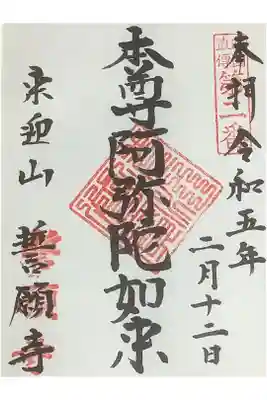 奉拝 令和五年
二月十二日
本尊阿弥陀如来
来迎山
誓願寺